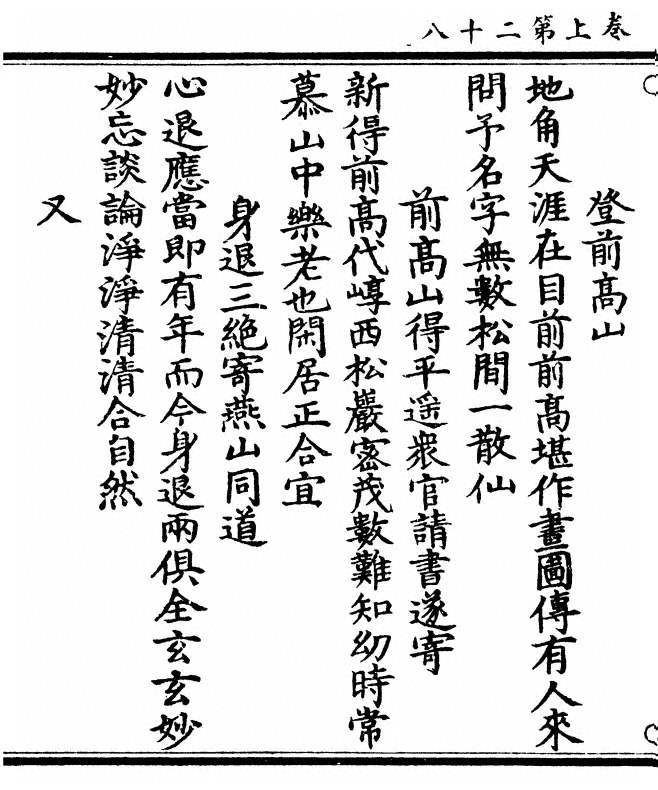 卷上第二十八
登前高山
地角天涯在目前前高堪作畫圖傳有人來
問予名字無數松間一散仙
前高山得平遥衆官請書遂寄
新得前高代嶂西松巖密茂數難知幼時常
慕山中樂老也閑居正合宜
身退三絕寄燕山同道
心退應當即有年而今身退兩俱全玄玄妙
妙忘談論淨淨清清合自然
又